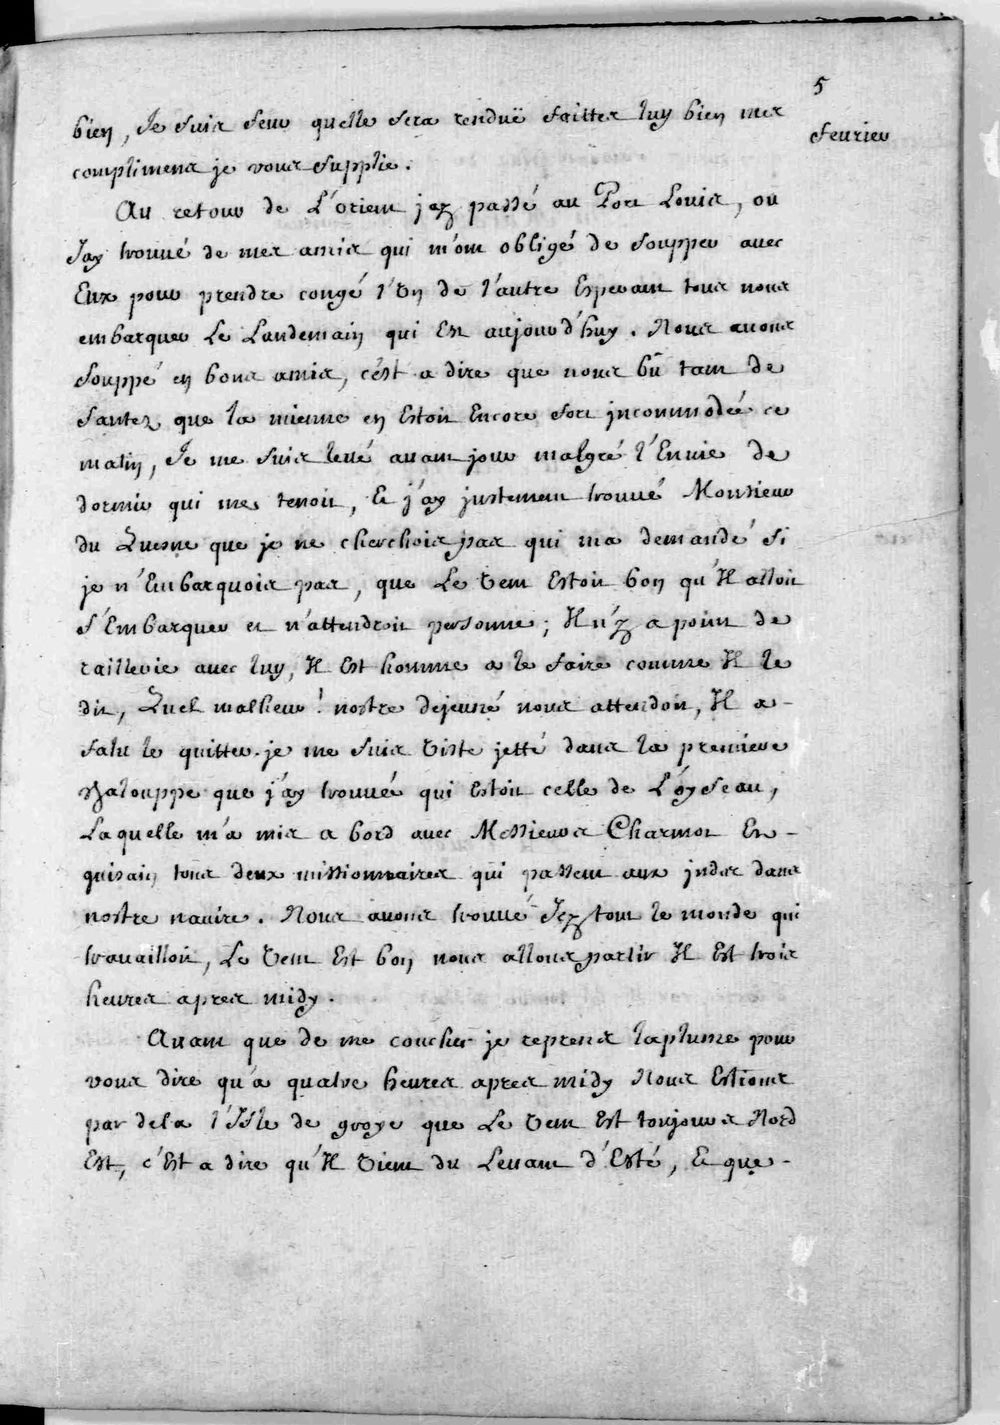 5
feurier
bien, Je suis seur quelle sera renduë faittes luy bien mes
complimens je vous supplie.
Au retour de L'orient j'ey passé au Port Louis, ou
J'ay trouué de mes amis qui m'ont obligé de soupper auec
Eux pour prendre congé l'Vn de l'autre Esperant tous nous
embarquer Le Landemain qui Est aujourd'huy. Nous auons
souppé en bons amis, c'ést a dire que nous bû tant de
santez que la mienne en Estoit Encore fort jncommodée ce
matin, Je me suis leué auant jour malgré l'Enuie de
dormir qui me tenoit, Et j'ay justement trouué Monsieur
du Quesne que je ne cherchois pas qui m'a demandé si
je n'Embarquois pas, que Le Vent Estoit bon qu'Il alloit
s'Embarquer et n'attendroit personne; Il n'y a point de
raillerie auec luy, Il Est homme a le faire comme Il le
dit, Quel malheur! nostre dejeuné nous attendoit, Il a-
falu le quitter. je me suis Viste jetté dans la premiere
chalouppe que j'ay trouuée qui Estoit celle de L'oyseau,
Laquelle m'a mis a bord auec Messieurs Charmot Et-
guisain tous deux missionnaires qui passent aux jndes dans
nostre nauire. Nous auons trouué Jcy tout le monde qui
trauailloit, Le Vent Est bon nous allons partir Il Est trois
heures apres midy.
Auant que de me coucher je reprens la plume pour
vous dire qu'a quatre heures apres midy Nous Estions
par dela l'Isle de groye que Le Vent Est toujours Nord
Est, c'Est a dire qu'Il Vient du Leuant d'Esté, Et que-